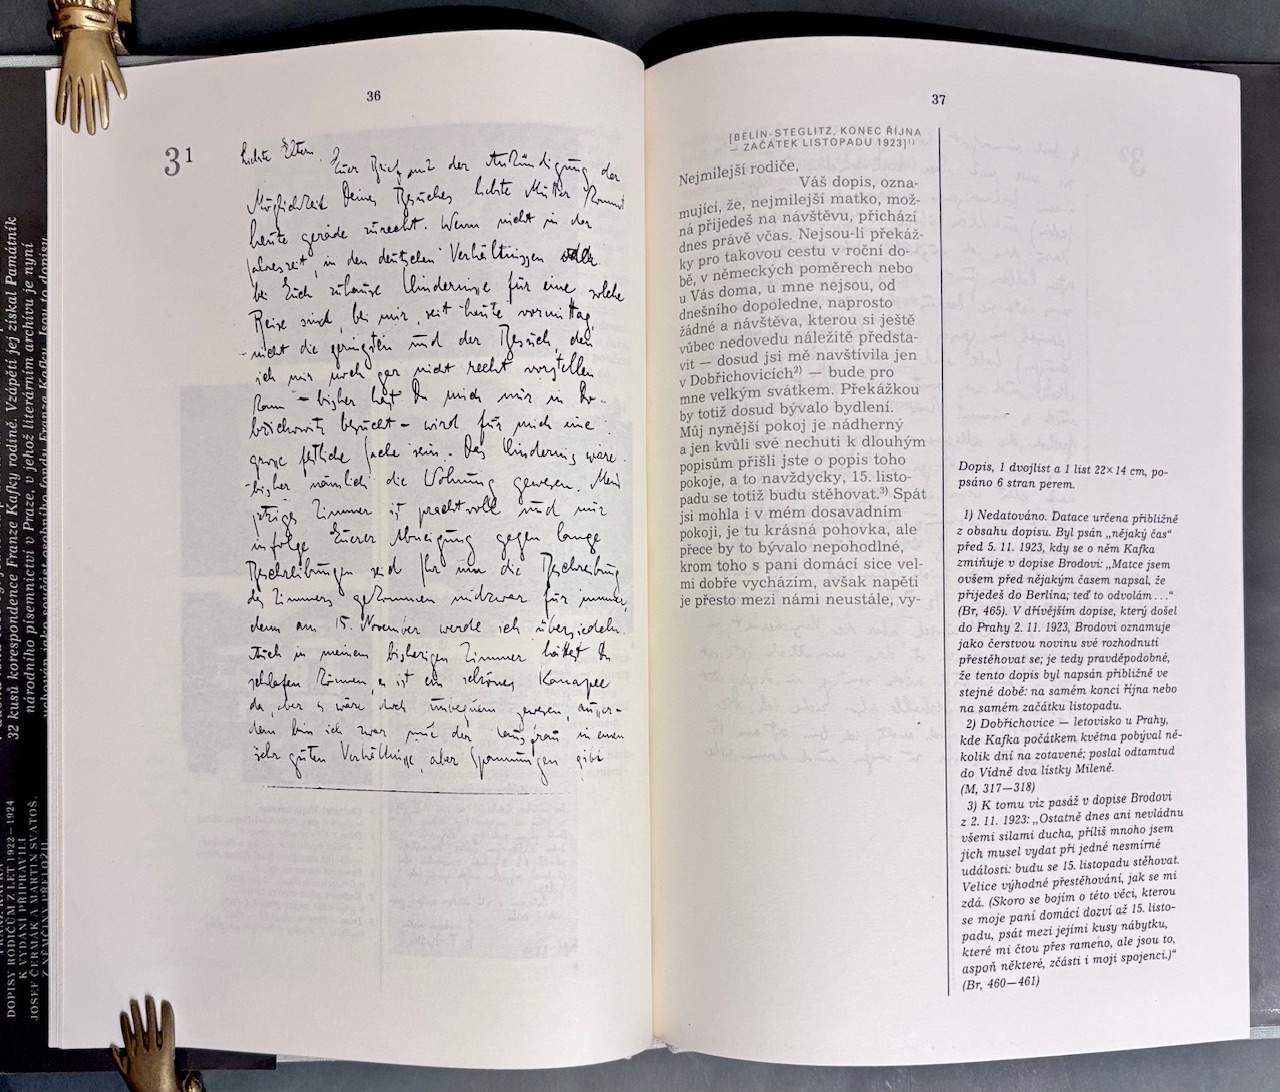 32 kusů korespondence Franze Kafky rodině. Vzápětí jej získal Památník
národního písemnictví v Praze, v jehož literárním archívu je nyní
DOPISY RODIČŮM Z LET 1922–1924
K VYDÁNÍ PŘIPRAVILI
JOSEF ČERMÁK A MARTIN SVATOŠ.
36
3¹
Liebste Eltern.
Euer Brief mit der Ankündigung der
Möglichkeit Deines Besuches liebste Mutter kommt
heute gerade zurecht. Wenn nicht in der
Jahreszeit, in den deutschen Verhältnissen oder
bei Euch zuhause Hindernisse für eine solche
Reise sind, bei mir, seit heute vormittag,
nicht die geringsten und der Besuch, den
ich mir noch gar nicht recht vorstellen
kann – bisher hast Du mich nur in Do-
brichowitz besucht – wird für mich eine
grosse festliche Sache sein. Das Hindernis wäre
bisher nämlich die Wohnung gewesen. Mein
jetziges Zimmer ist prachtvoll und nur
infolge Euerer Abneigung gegen lange
Beschreibungen seid Ihr um die Beschreibung
des Zimmers gekommen undzwar für immer,
denn am 15. November werde ich übersiedeln.
Auch in meinem bisherigen Zimmer hättest Du
schlafen können, es ist ein schönes Kanapee
da, aber es wäre doch unbequem gewesen, ausser-
dem bin ich zwar mit der Hausfrau in einem
sehr guten Verhältnisse, aber Spannungen gibt
37
[BELÍN-STEGLITZ, KONEC ŘÍJNA
— ZAČÁTEK LISTOPADU 1923]¹⁾
Nejmilejší rodiče,
Váš dopis, ozna-
mující, že, nejmilejší matko, mož-
ná přijedeš na návštěvu, přichází
dnes právě včas. Nejsou-li překáž-
ky pro takovou cestu v roční do-
bě, v německých poměrech nebo
u Vás doma, u mne nejsou, od
dnešního dopoledne, naprosto
žádné a návštěva, kterou si ještě
vůbec nedovedu náležitě předsta-
vit — dosud jsi mě navštívila jen
v Dobřichovicích²⁾ — bude pro
mne velkým svátkem. Překážkou
by totiž dosud bývalo bydlení.
Můj nynější pokoj je nádherný
a jen kvůli své nechuti k dlouhým
popisům přišli jste o popis toho
pokoje, a to navždycky, 15. listo-
padu se totiž budu stěhovat.³⁾ Spát
jsi mohla i v mém dosavadním
pokoji, je tu krásná pohovka, ale
přece by to bývalo nepohodlné,
krom toho s paní domácí sice vel-
mi dobře vycházím, avšak napětí
je přesto mezi námi neustále, vy-
Dopis, 1 dvojlist a 1 list 22×14 cm, po-
psáno 6 stran perem.
1) Nedatováno. Datace určena přibližně
z obsahu dopisu. Byl psán „nějaký čas"
před 5. 11. 1923, kdy se o něm Kafka
zmiňuje v dopise Brodovi: „Matce jsem
ovšem před nějakým časem napsal, že
přijedeš do Berlína; teď to odvolám . . ."
(Br, 465). V dřívějším dopise, který došel
do Prahy 2. 11. 1923, Brodovi oznamuje
jako čerstvou novinu své rozhodnutí
přestěhovat se; je tedy pravděpodobné,
že tento dopis byl napsán přibližně ve
stejné době: na samém konci října nebo
na samém začátku listopadu.
2) Dobřichovice — letovisko u Prahy,
kde Kafka počátkem května pobýval ně-
kolik dní na zotavené; poslal odtamtud
do Vídně dva lístky Mileně.
(M, 317—318)
3) K tomu viz pasáž v dopise Brodovi
z 2. 11. 1923: „Ostatně dnes ani nevládnu
všemi silami ducha, příliš mnoho jsem
jich musel vydat při jedné nesmírné
události: budu se 15. listopadu stěhovat.
Velice výhodné přestěhování, jak se mi
zdá. (Skoro se bojím o této věci, kterou
se moje paní domácí dozví až 15. listo-
padu, psát mezi jejími kusy nábytku,
které mi čtou přes rameno, ale jsou to,
aspoň některé, zčásti i moji spojenci.)"
(Br, 460—461)